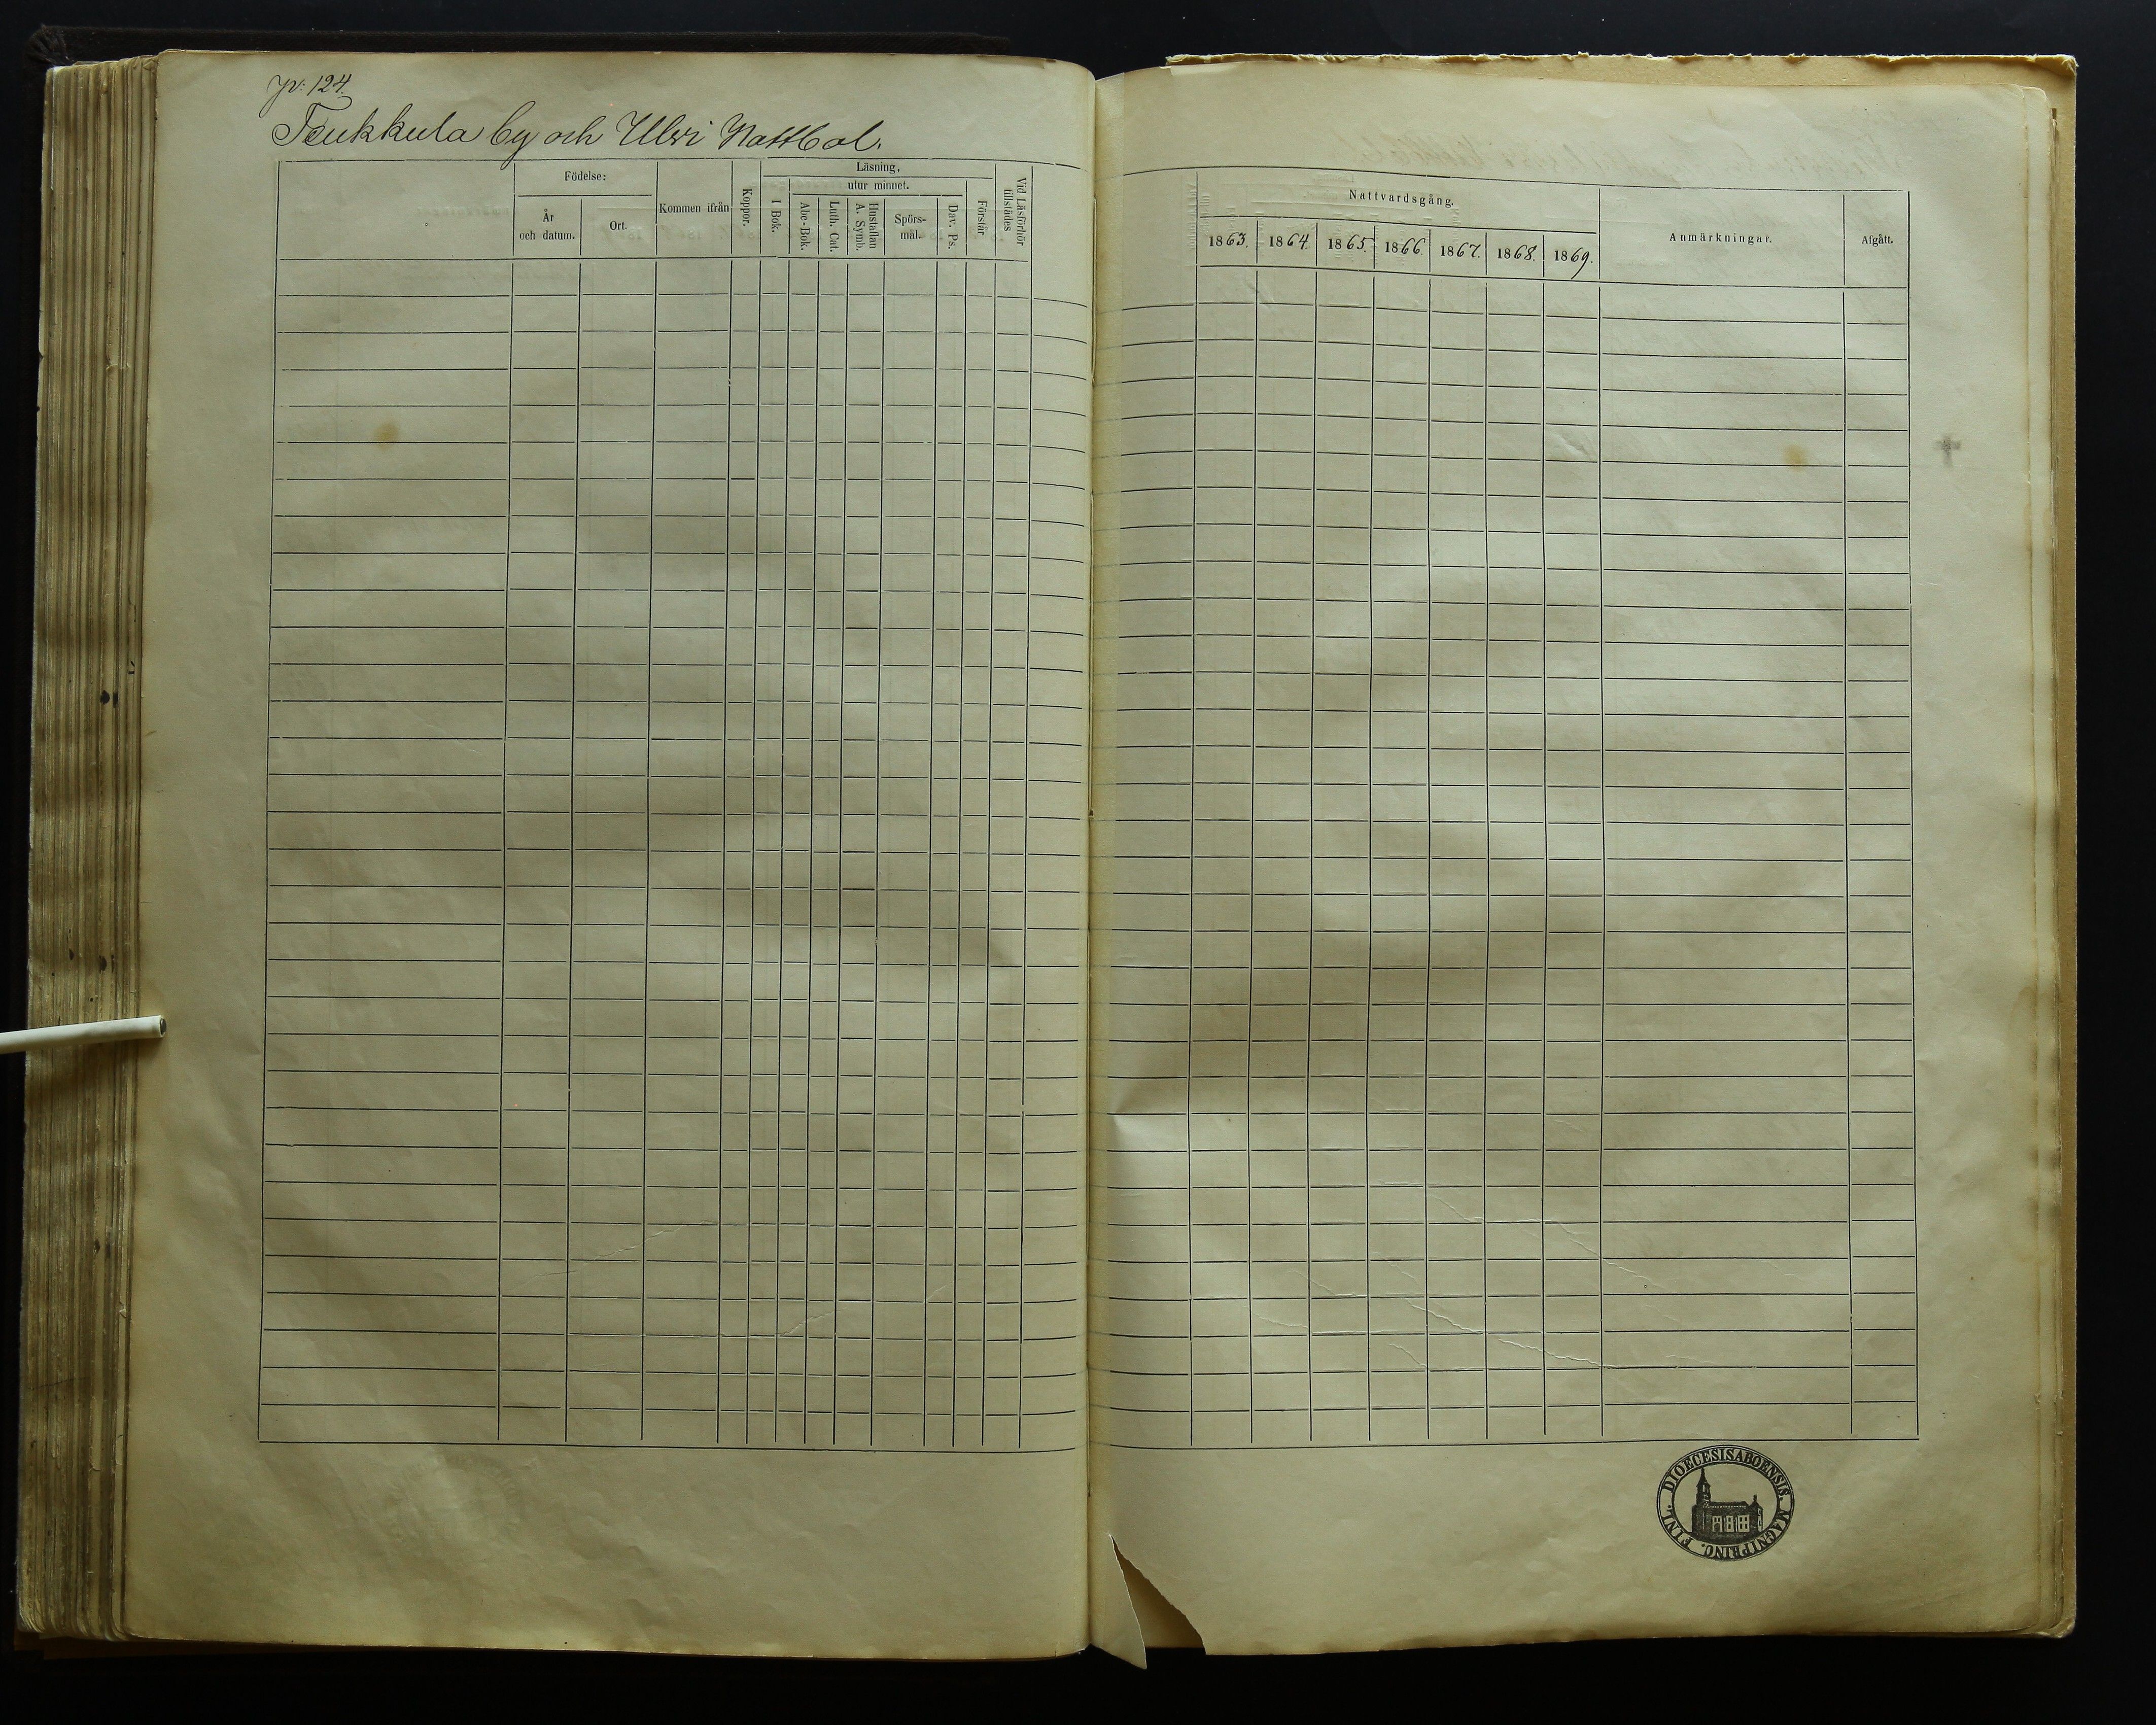 124.
by och Ulvi Nattbol.
Födelse:
År
och datum.
Ort.
Kommen ifrån
Koppor.
Läsning,
utur minnet.
I Bok.
Abc-Bok.
Luth. Cat.
Hustaflan
A. Symb.
Spörs-
mål.
Dav. Ps.
Förstår.
Vid Läsförhör
tillstädes
Nattvardsgång.
1863. 1864. 1865. 1866. 1867. 1868. 1869.
Anmärkningar.
Afgått.
DIOECESIS ABOENSIS. MAGNI PRINC. FINL.